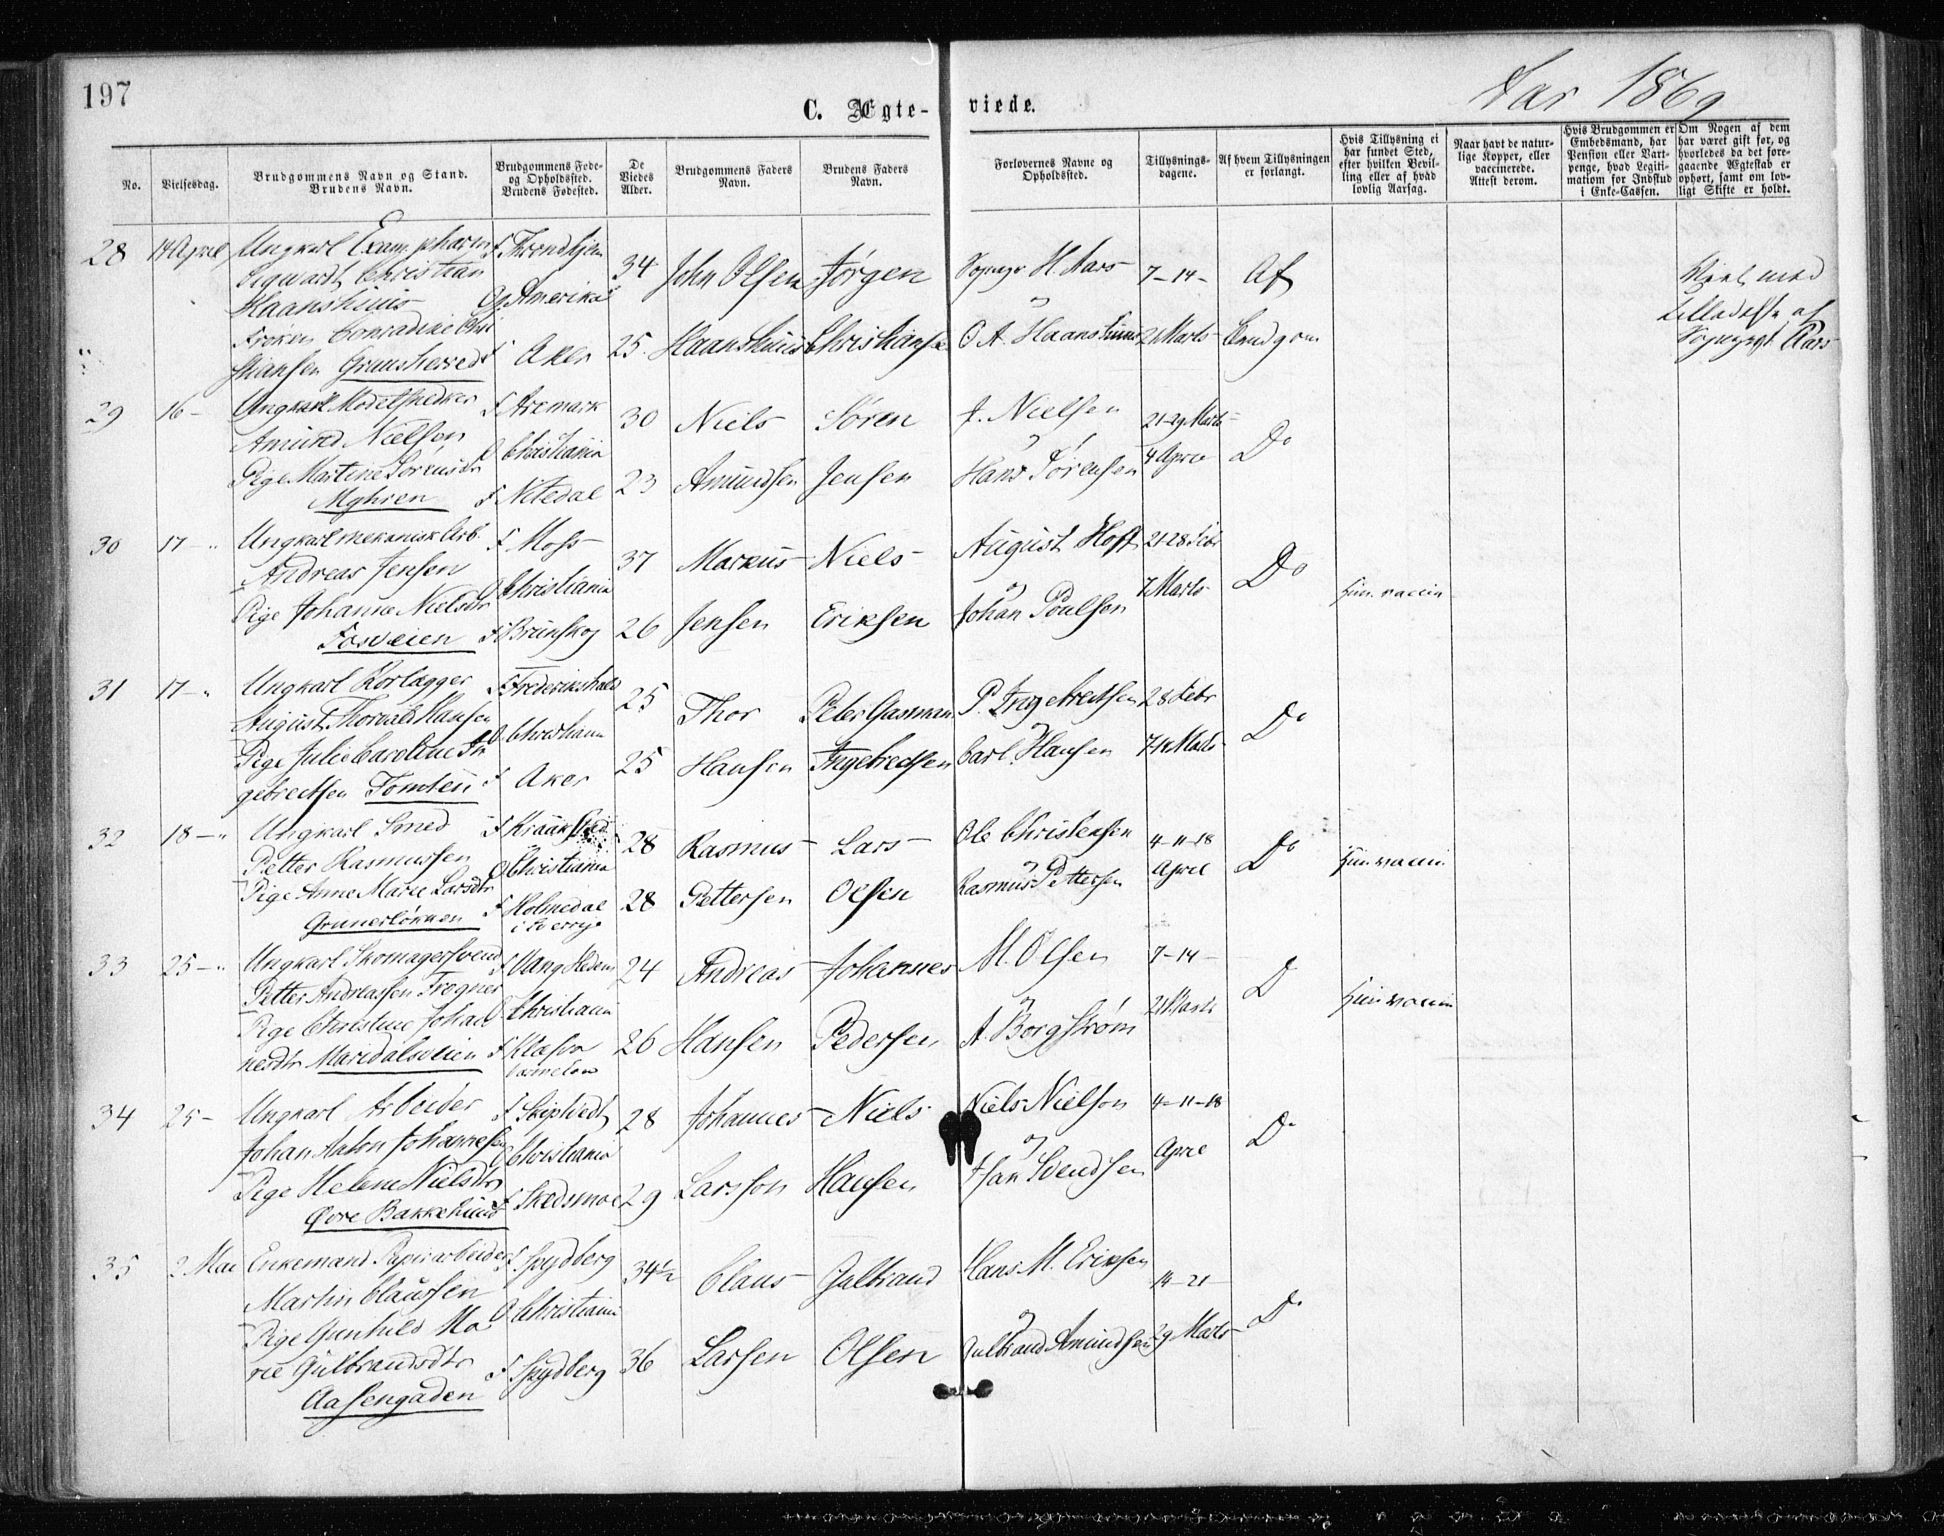 197
C. Ægte-
viede.
Aar 1869
No.
Vielsesdag.
Brudgommens Navn og Stand.
Brudens Navn.
Brudgommens Føde-
og Opholdssted.
Brudens Fødested.
De
Viedes
Alder.
Brudgommens Faders
Navn.
Brudens Faders
Navn.
Forlovernes Navne og
Opholdssted.
Tillysnings-
dagene.
Af hvem Tillysningen
er forlangt.
Hvis Tillysning ei
har fundet Sted,
efter hvilken Bevil-
ling eller af hvad
lovlig Aarsag.
Naar havt de natur-
lige Kopper, eller
vaccinerede.
Attest derom.
Hvis Brudgommen er
Embedsmand, har
Pension eller Vart-
penge, hvad Legiti-
mation for Indskud
i Enke-Cassen.
Om Nogen af dem
har været gift før, og
hvorledes da det fore-
gaaende Ægteskab er
ophørt, samt om lov-
ligt Skifte er holdt.
28
14 April
Ungkarl Exam. pharm
Sigwardt Christian
Haanshuus
Frøken Conradine Chri
stiansen Grunsterred
F Throndhjem
O Amerika
F Aker
34
25
John Olsen
Haanshuus
Jørgen
Christiansen
Sognepr H. Aars
og
O A. Haanshuus
7-14-
21 Marts
Af
Brudgom
Viet med
Tilladelse af
Sognepr Aars
29
16-
Ungkarl Modelsnedker
Amund Nielsen
Pige Martine Sørensdtr
Myhren
F Aremark
O Christiania
F Nitedal
30
23
Niels
Amundsen
Søren
Jensen
J. Nielsen
og
Hans Sørensen
21-29 Marts
4 April
Do
30
17-"
Ungkarl mekanisk Arb.
Andreas Jensen
Pige Johanne Nielsdtr
Fosveien
F Moss
O Christiania
F Brunskog
37
26
Markus
Jensen
Niels
Eriksen
August Hoff
og
Johan Poulson
21-28 Febr
7 Marts
Do
Hun vaccin
31
17-"
Ungkarl Korlægger
August Thorvald Hansen
Pige Julie Caroline In
gebretsen Tomten
F Frederikshald
O Christiania
F Aker
25
25
Thor
Hansen
Peter Gasman
Ingebretsen
P. Ingebretsen
og
Carl Hansen
28 Febr
7-14 Marts
Do
32
18-"
Ungkarl Smed
Petter Rasmussen
Pige Anne Marie Larsdtr
Grunerløkken
F Kraakstad
O Christiania
F Holmedal
i Sverrige
28
28
Rasmus
Pettersen
Lars
Olsen
Ole Christensen
og
Rasmus Pettersen
4-11-18
April
Do
Hun vaccin
33
25-"
Ungkarl Skomagersvend
Petter Andreassen Frogner
Pige Christine Johan
nesdtr Maridalsveien
F Vang Hedem
O Christiania
F Klasbo
24
26
Andreas
Hansen
Johannes
Pedersen
M. Olsen
og
A. Borgstrøm
7-14-
21 Marts
Do
Hun vaccin
34
25-
Ungkarl Arbeider
Johan Anton Johannesen
Pige Helene Nielsdtr
Øvre Bakkehuus
F Skiptvedt
O Christiania
F Skedsmoe
28
29
Johannes
Larsson
Niels
Hansen
Niels Nielson
og
Svendsen
4-11-18
April
Do
35
2 Mai
Enkemand Papirarbeider
Martin Clausen
Pige Gunhild Ma
rie Gulbrandsdtr
Aasengaden
F Spydberg
O Christiania
F Spydberg
34½
36
Claus
Larsen
Gulbrand
Olsen
Hans M. Eriksen
og
Gulbrand Amundsen
14-21
29 Marts
Do